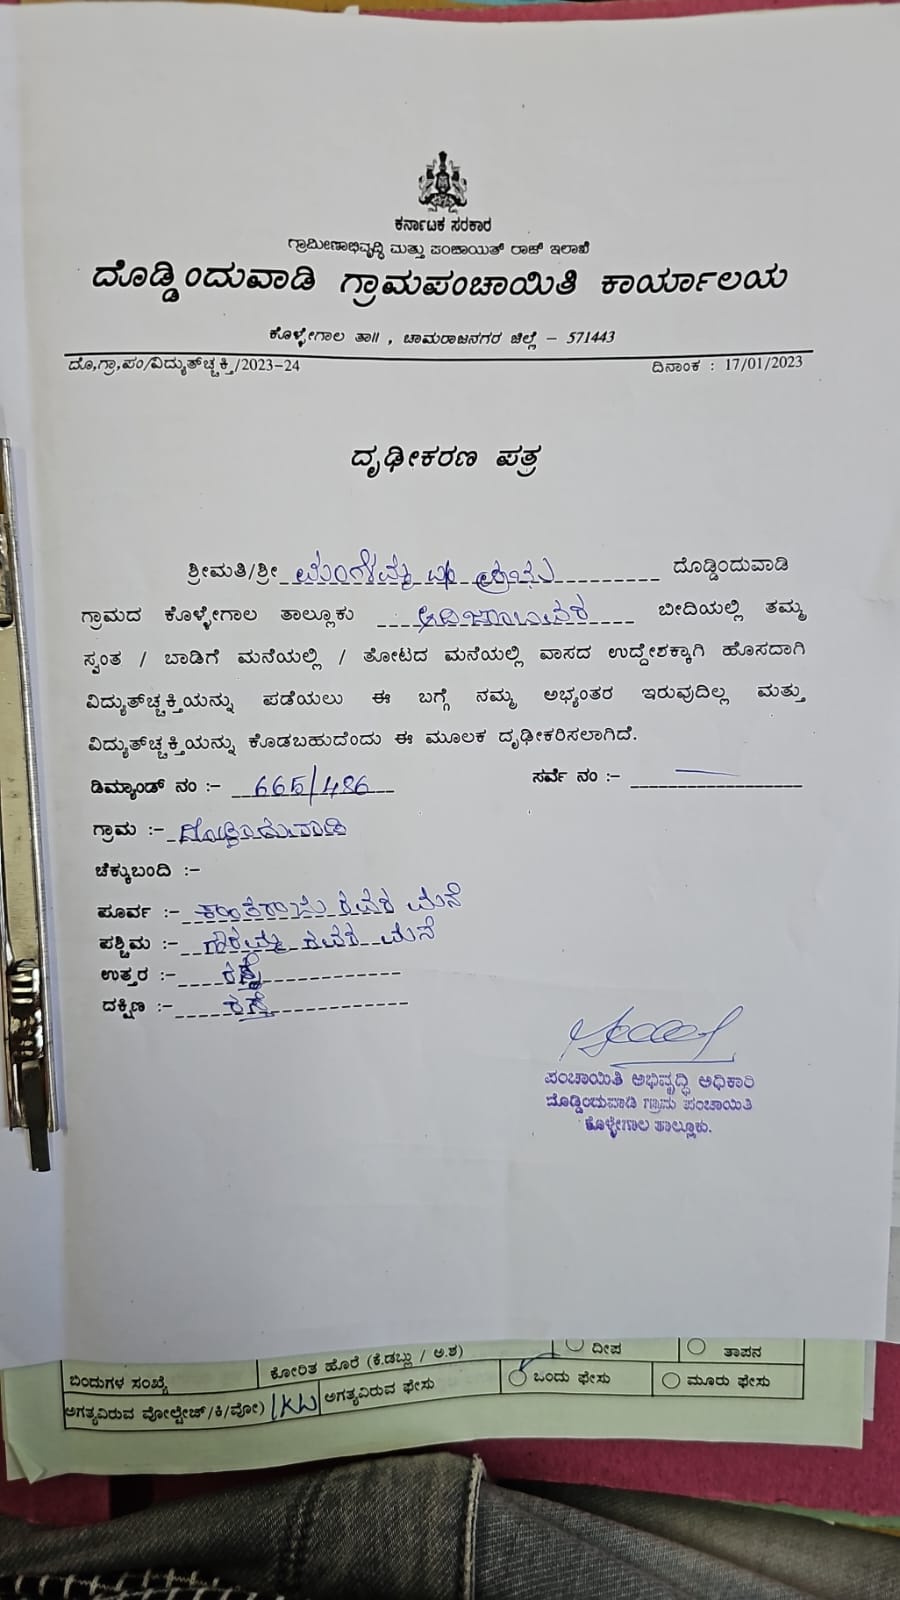 ಕರ್ನಾಟಕ ಸರಕಾರ
ಗ್ರಾಮೀಣಾಭಿವೃದ್ಧಿ ಮತ್ತು ಪಂಚಾಯಿತ್ ರಾಜ್ ಇಲಾಖೆ
ದೊಡ್ಡಿಂದುವಾಡಿ ಗ್ರಾಮಪಂಚಾಯಿತಿ ಕಾರ್ಯಾಲಯ
ಕೊಳ್ಳೇಗಾಲ ತಾ॥ , ಚಾಮರಾಜನಗರ ಜಿಲ್ಲೆ – 571443
ದೊ,ಗ್ರಾ,ಪಂ/ವಿದ್ಯುತ್‌ಚ್ಚಕ್ತಿ/2023-24 ದಿನಾಂಕ : 17/01/2023
ದೃಢೀಕರಣ ಪತ್ರ
ಶ್ರೀಮತಿ/ಶ್ರೀ ಮಂಗಳಮ್ಮ ದೊಡ್ಡಿಂದುವಾಡಿ
ಗ್ರಾಮದ ಕೊಳ್ಳೇಗಾಲ ತಾಲ್ಲೂಕು ಬೀದಿಯಲ್ಲಿ ತಮ್ಮ
ಸ್ವಂತ / ಬಾಡಿಗೆ ಮನೆಯಲ್ಲಿ / ತೋಟದ ಮನೆಯಲ್ಲಿ ವಾಸದ ಉದ್ದೇಶಕ್ಕಾಗಿ ಹೊಸದಾಗಿ
ವಿದ್ಯುತ್‌ಚ್ಚಕ್ತಿಯನ್ನು ಪಡೆಯಲು ಈ ಬಗ್ಗೆ ನಮ್ಮ ಅಭ್ಯಂತರ ಇರುವುದಿಲ್ಲ ಮತ್ತು
ವಿದ್ಯುತ್‌ಚ್ಚಕ್ತಿಯನ್ನು ಕೊಡಬಹುದೆಂದು ಈ ಮೂಲಕ ದೃಢೀಕರಿಸಲಾಗಿದೆ.
ಡಿಮ್ಯಾಂಡ್ ನಂ :- 665/486 ಸರ್ವೆ ನಂ :-
ಗ್ರಾಮ :- ದೊಡ್ಡಿಂದುವಾಡಿ
ಚೆಕ್ಕುಬಂದಿ :-
ಪೂರ್ವ :- ರವರ ಮನೆ
ಪಶ್ಚಿಮ :- ಗೌರಮ್ಮ ರವರ ಮನೆ
ಉತ್ತರ :- ರಸ್ತೆ
ದಕ್ಷಿಣ :- ರಸ್ತೆ
ಪಂಚಾಯಿತಿ ಅಭಿವೃದ್ಧಿ ಅಧಿಕಾರಿ
ದೊಡ್ಡಿಂದುವಾಡಿ ಗ್ರಾಮ ಪಂಚಾಯಿತಿ
ಕೊಳ್ಳೇಗಾಲ ತಾಲ್ಲೂಕು.
ಬಿಂದುಗಳ ಸಂಖ್ಯೆ ಕೋರಿತ ಹೊರೆ (ಕೆ.ಡಬ್ಲು / ಅ.ಶ) ದೀಪ ತಾಪನ
ಅಗತ್ಯವಿರುವ ವೋಲ್ಟೇಜ್/ಕಿ/ವೋ) 1KW ಅಗತ್ಯವಿರುವ ಫೇಸು ಒಂದು ಫೇಸು ಮೂರು ಫೇಸು